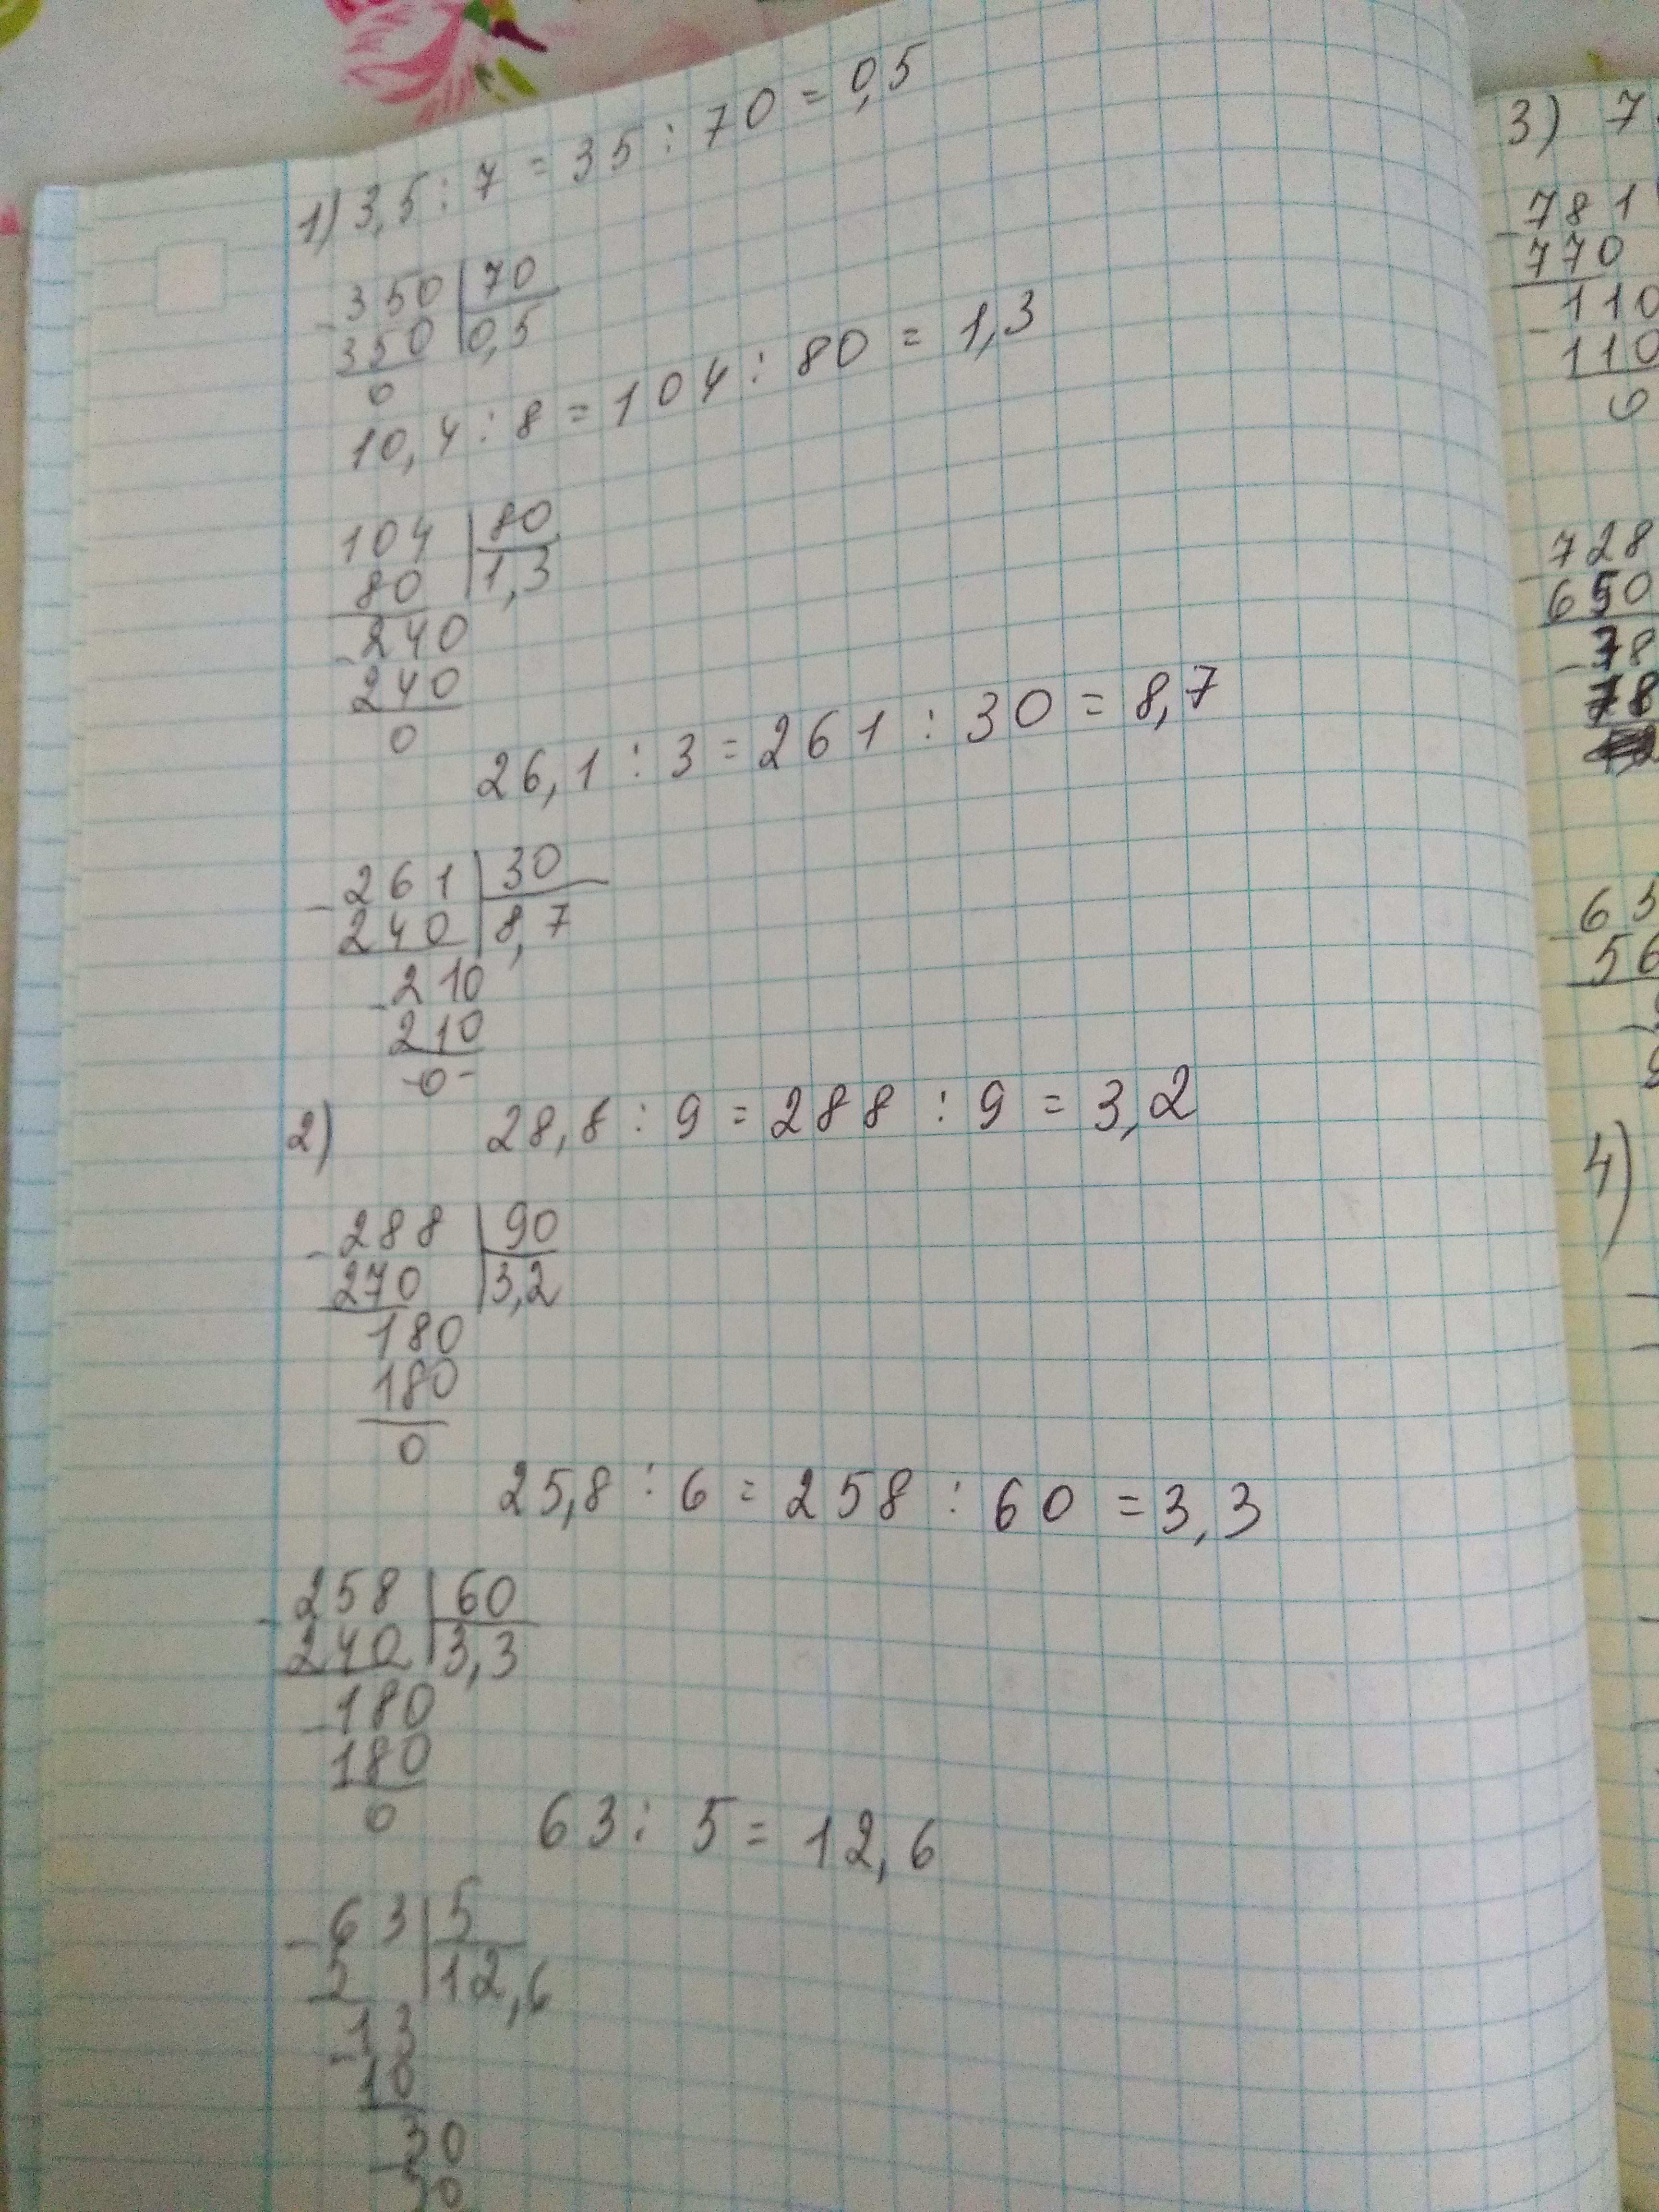 1) 3,5 : 7 = 35 : 70 = 0,5
- 350 | 70
350 | 0,5
0
10,4 : 8 = 104 : 80 = 1,3
104 | 80
80 | 1,3
- 240
240
0
26,1 : 3 = 261 : 30 = 8,7
- 261 | 30
240 | 8,7
- 210
210
-0-
2) 28,8 : 9 = 288 : 9 = 3,2
- 288 | 90
270 | 3,2
180
180
0
25,8 : 6 = 258 : 60 = 3,3
- 258 | 60
240 | 3,3
- 180
180
0
63 : 5 = 12,6
- 63 | 5
5 | 12,6
- 13
10
- 30
30
3) 7
- 781
770
- 110
110
0
- 728
650
- 78
78
- 63
56
4)